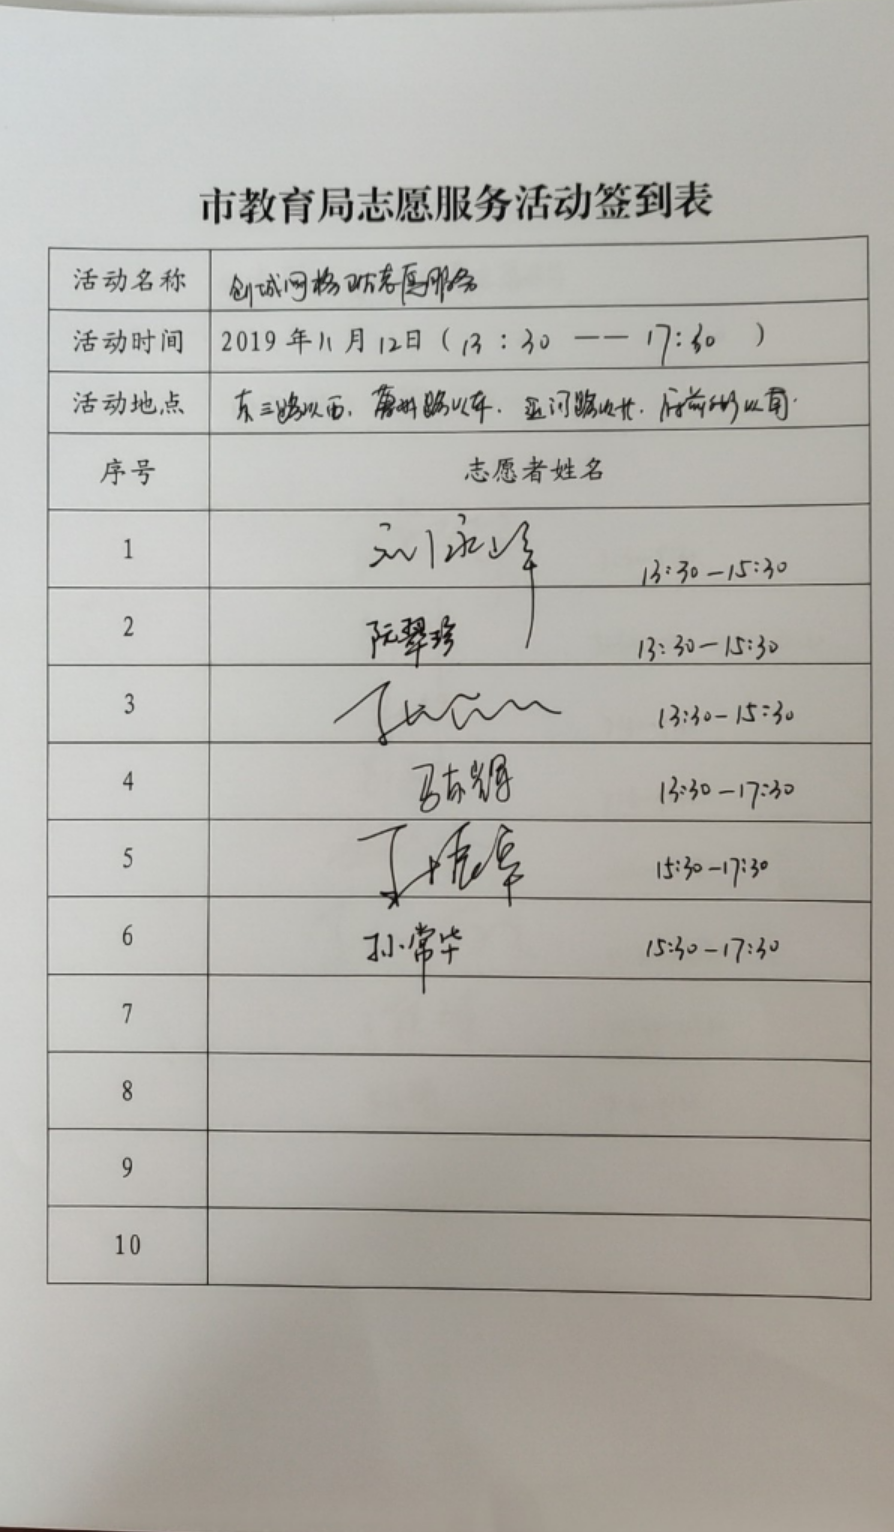 市教育局志愿服务活动签到表
活动名称 创城网格站志愿服务
活动时间 2019年11月12日(13:30——17:30)
活动地点 东三路以西、路以东、河路以北、府前街以南.
序号 志愿者姓名
1 刘永峰 13:30-15:30
2 阮翠珍 13:30-15:30
3 13:30-15:30
4 马东辉 13:30-17:30
5 15:30-17:30
6 孙常毕 15:30-17:30
7
8
9
10